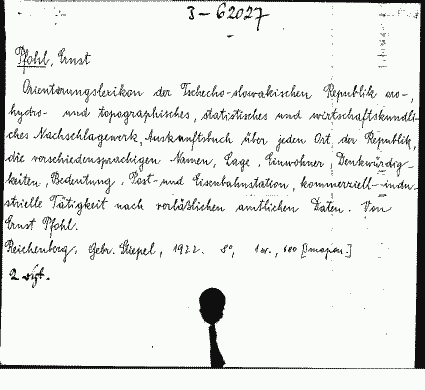 3-62027
Pfohl, Ernst
Orientierungslexikon der Tschecho-slowakischen Republik oro-,
hydro- und topographisches, statistisches und wirtschaftskundli-
ches Nachschlagewerk, Auskunftsbuch über jeden Ort der Republik,
die verschiedensprachigen Namen, Lage, Einwohner, Denkwürdig-
keiten, Bedeutung, Post- und Eisenbahnstation, kommerziell-indu-
strielle Tätigkeit nach verläßlichen amtlichen Daten. Von
Ernst Pfohl.
Reichenberg, Gebr. Stiepel, 1922. 8°, 680 [mapou.]
2